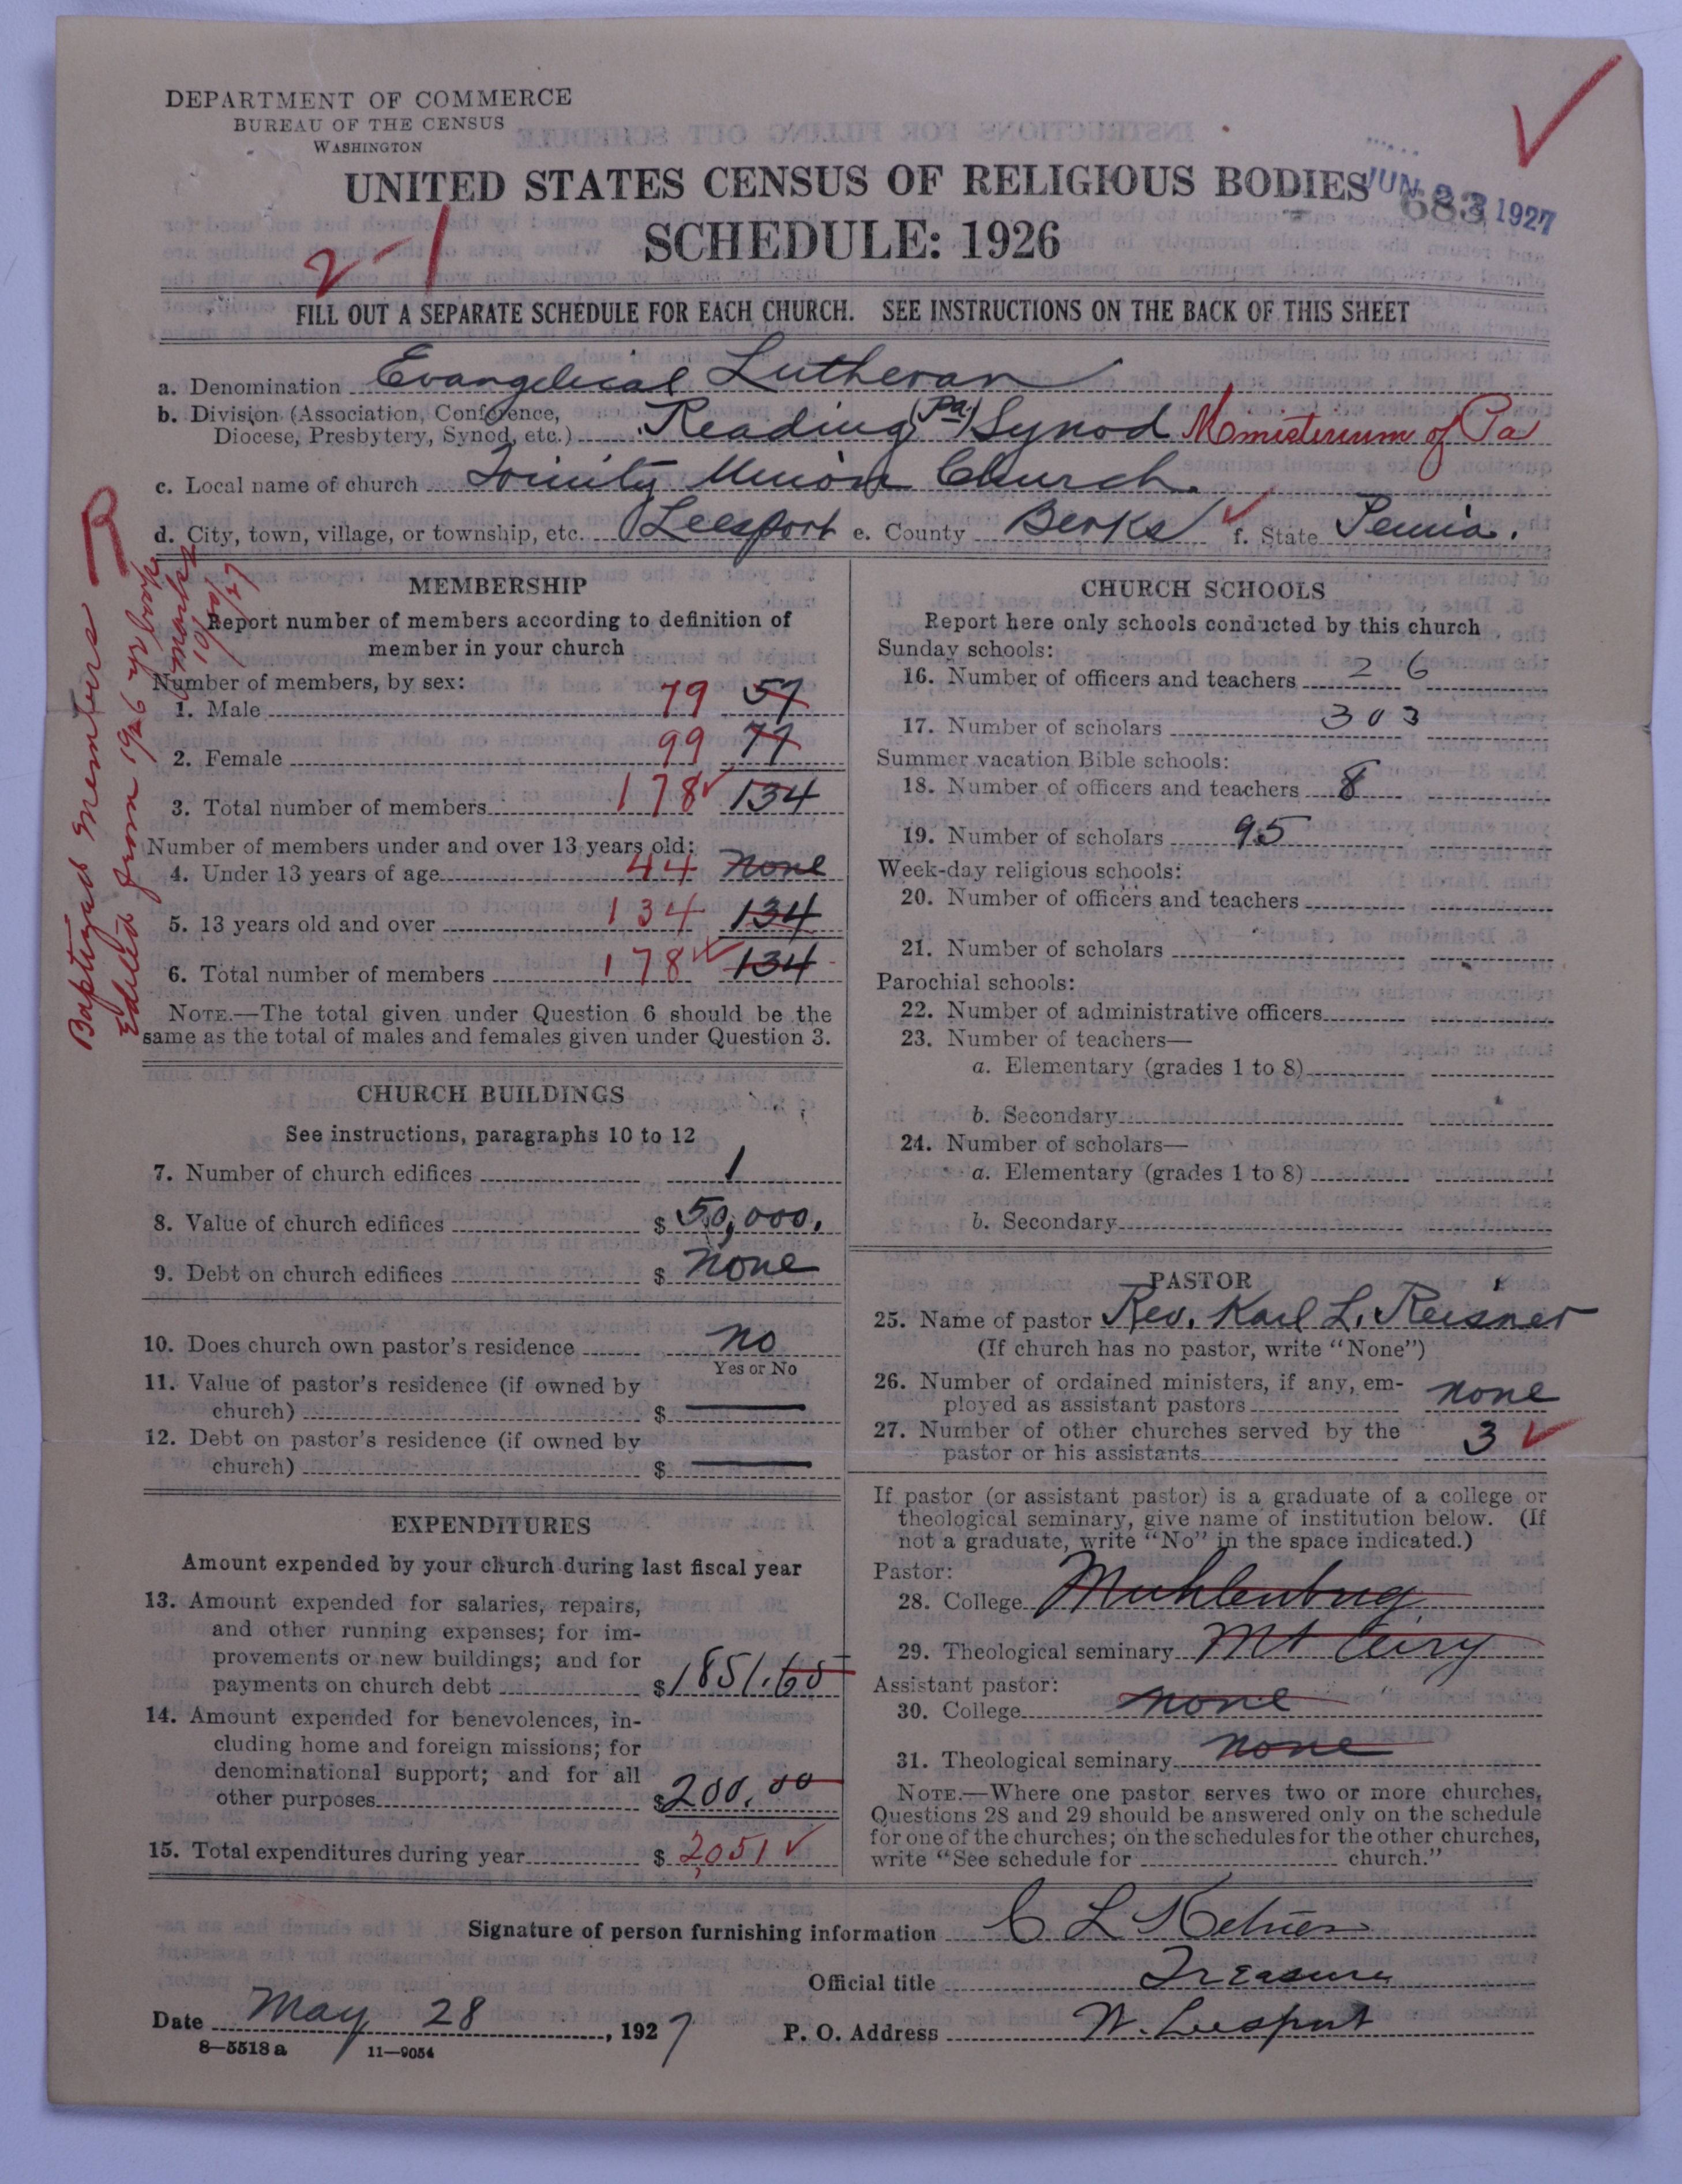 DEPARTMENT OF COMMERCE
BUREAU OF THE CENSUS
WASHINGTON
UNITED STATES CENSUS OF RELIGIOUS BODIES
JUN 1927
683
SCHEDULE: 1926
2-1
FILL OUT A SEPARATE SCHEDULE FOR EACH CHURCH. SEE INSTRUCTIONS ON THE BACK OF THIS SHEET
a. Denomination Evangelical Lutheran
b. Division (Association, Conference, Diocese, Presbytery, Synod, etc.) Reading (Pa) Synod Ministerium of Pa
c. Local name of church Trinity Union Church.
d. City, town, village, or township, etc. Leesport e. County Berks f. State Penna.
R
Baptized Members
Edited from 1926 yr book
10/20/27
MEMBERSHIP
Report number of members according to definition of
member in your church
Number of members, by sex:
1. Male 79 57
2. Female 99 77
3. Total number of members 178 134
Number of members under and over 13 years old:
4. Under 13 years of age 44 none
5. 13 years old and over 134 134
6. Total number of members 178 134
NOTE.—The total given under Question 6 should be the
same as the total of males and females given under Question 3.
CHURCH BUILDINGS
See instructions, paragraphs 10 to 12
7. Number of church edifices 1
8. Value of church edifices $ 50,000.
9. Debt on church edifices $ none
10. Does church own pastor's residence no
Yes or No
11. Value of pastor's residence (if owned by
church) $
12. Debt on pastor's residence (if owned by
church) $
EXPENDITURES
Amount expended by your church during last fiscal year
13. Amount expended for salaries, repairs,
and other running expenses; for im-
provements or new buildings; and for
payments on church debt $1851.65
14. Amount expended for benevolences, in-
cluding home and foreign missions; for
denominational support; and for all
other purposes $200.00
15. Total expenditures during year $ 2051
CHURCH SCHOOLS
Report here only schools conducted by this church
Sunday schools:
16. Number of officers and teachers 26
17. Number of scholars 303
Summer vacation Bible schools:
18. Number of officers and teachers 8
19. Number of scholars 95
Week-day religious schools:
20. Number of officers and teachers
21. Number of scholars
Parochial schools:
22. Number of administrative officers
23. Number of teachers—
a. Elementary (grades 1 to 8)
b. Secondary
24. Number of scholars—
a. Elementary (grades 1 to 8)
b. Secondary
PASTOR
25. Name of pastor Rev. Karl L. Reisner
(If church has no pastor, write "None")
26. Number of ordained ministers, if any, em-
ployed as assistant pastors none
27. Number of other churches served by the
pastor or his assistants 3
If pastor (or assistant pastor) is a graduate of a college or
theological seminary, give name of institution below. (If
not a graduate, write "No" in the space indicated.)
Pastor:
28. College Muhlenburg
29. Theological seminary Mt Airy
Assistant pastor:
30. College none
31. Theological seminary none
NOTE.—Where one pastor serves two or more churches,
Questions 28 and 29 should be answered only on the schedule
for one of the churches; on the schedules for the other churches,
write "See schedule for church."
Signature of person furnishing information C L
Official title Treasurer
Date May 28, 1927 P. O. Address W. Leesport
8-5518a 11-9054